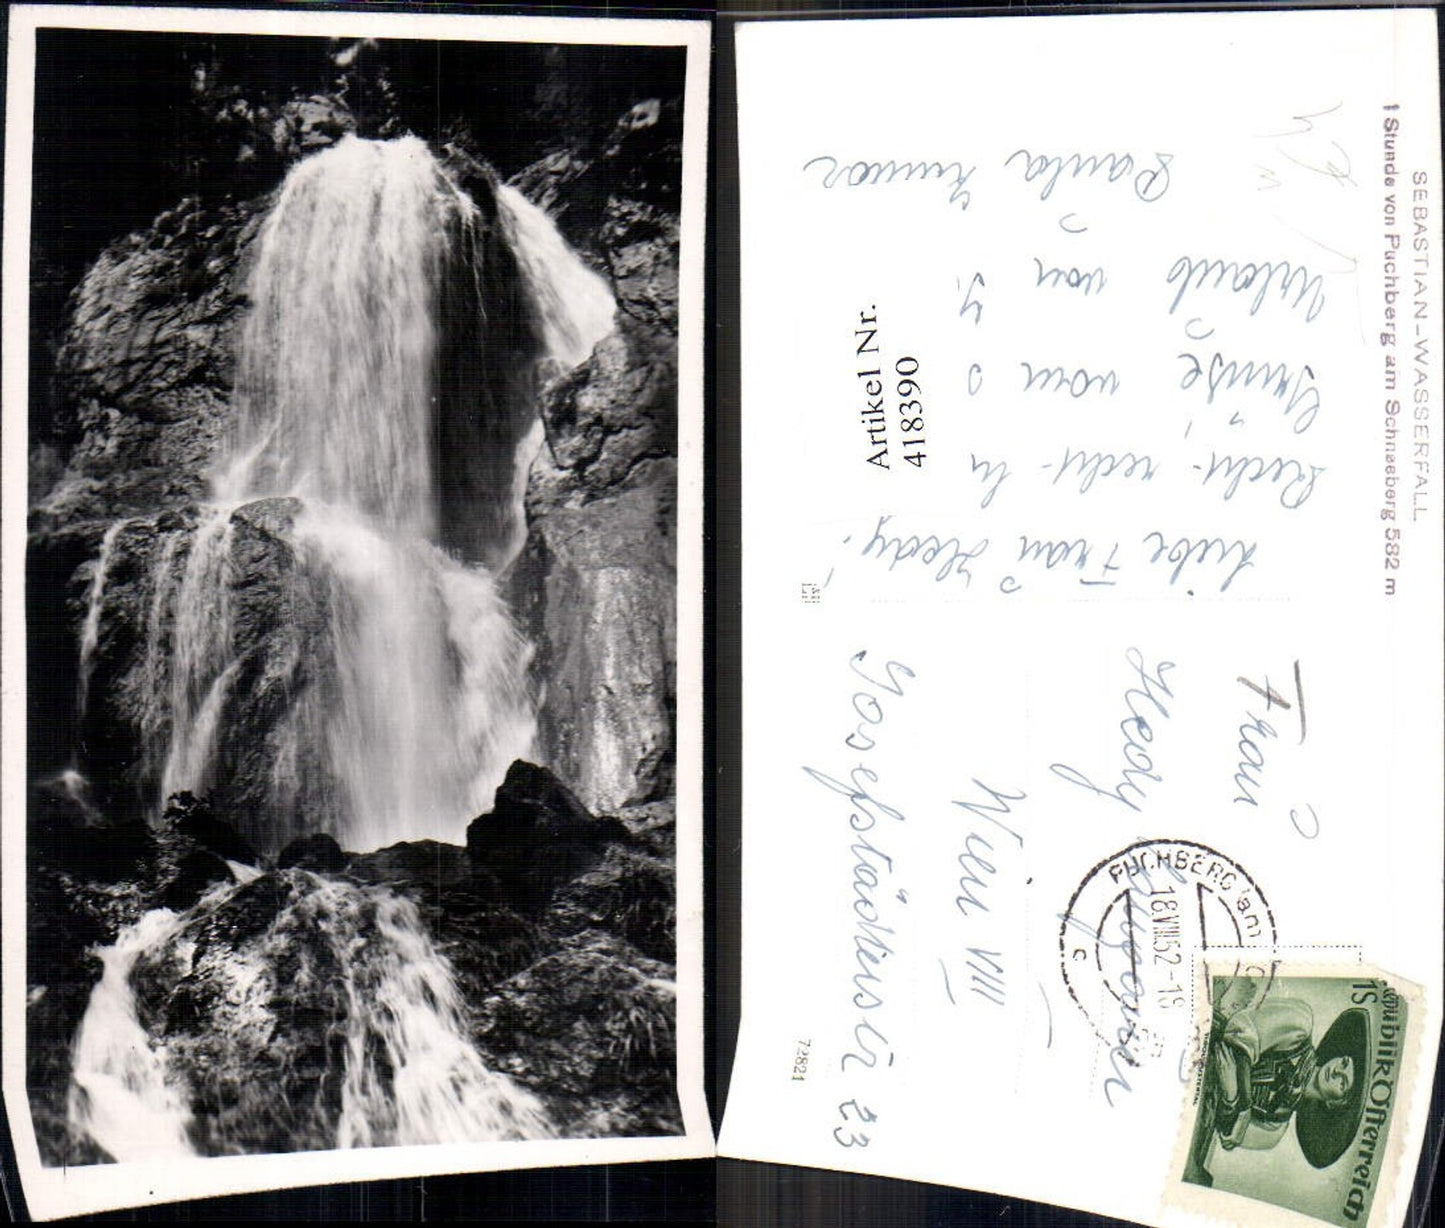 SEBASTIAN-WASSERFALL
1 Stunde von Puchberg am Schneeberg 582 m
Liebe Frau Hedy!
Recht-recht-h
Grüße vom
Urlaub von
Paula
Frau
Hedy
Wien VIII
Josefstädterstr 23
PUCHBERG (am
18.VIII.52-19
C
Republik Österreich
1S
72821
Artikel Nr.
418390